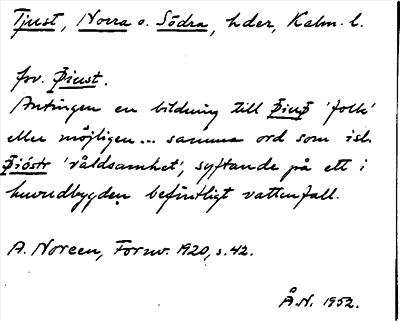 Tjust, Norra o. Södra, hder, Kalm. l.
fsv. Þiust.
Antingen en bildning till þiuþ 'folk'
eller möjligen... samma ord som isl.
þjóstr 'våldsamhet', syftande på ett i
huvudbygden befintligt vattenfall.
A. Noreen, Fornv. 1920, s. 42.
Å.N. 1952.